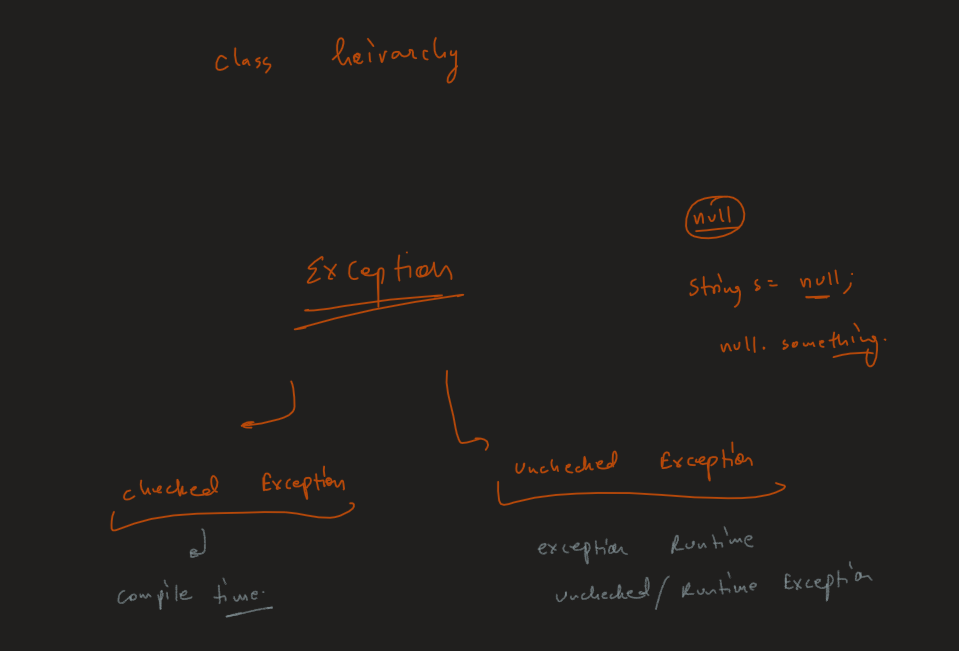 class heirarchy
null
Exception
String s = null;
null. something.
checked Exception
Unchecked Exception
compile time.
exception Runtime
unchecked/ Runtime Exception